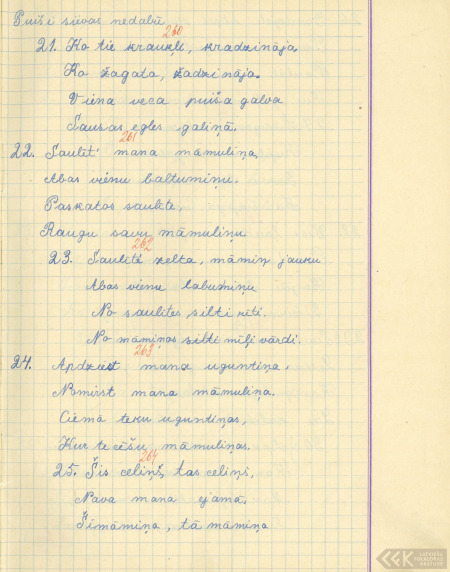 Puiši sievas nedabū
260
21. Ko tie kraukļi, kradzināja,
Ko žagata, žadzināja.
Viena veca puiša galva
Sausas egles galiņā.
261
22. Saulīt' mana māmuliņa,
Abas vienu baltumiņu.
Paskatos saulīte,
Raugu savu māmuliņu
262
23. Saulīte zelta, māmiņ jauku
Abas vienu labumiņu
No saulītes silti rīti.
No māmiņas silti mīļi vārdi.
263
24. Apdziest mana uguntiņa,
Nomirst mana māmuliņa.
Ciemā teku uguntiņas,
Kur te cēšu, māmuliņas.
264
25. Šis celiņš, tas celiņš,
Nava mana ejamā.
Šī māmiņa, tā māmiņa
LATVIEŠU
FOLKLORAS
KRĀTUVE